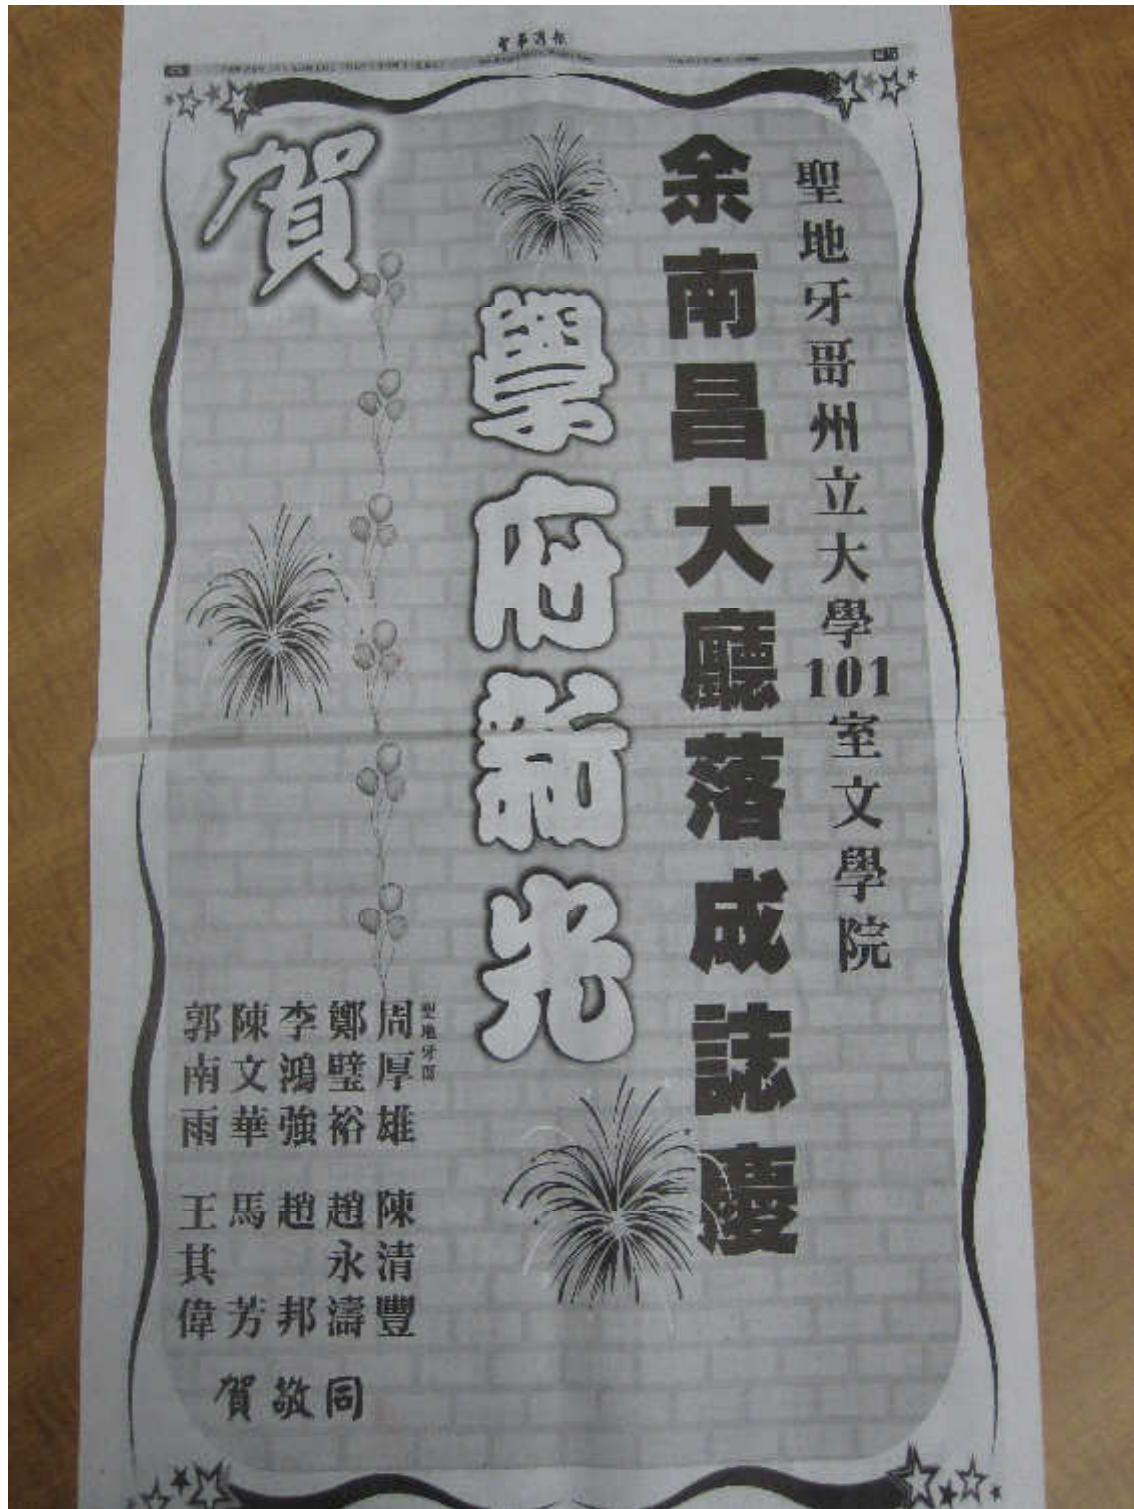 聖華週報
聖地牙哥州立大學101室文學院
余南昌大廳落成誌慶
學府新光
賀
聖地牙哥
周厚雄
鄭璧裕
李鴻強
陳文華
郭南雨
陳清豐
趙永濤
趙邦
馬芳
王其偉
同敬賀